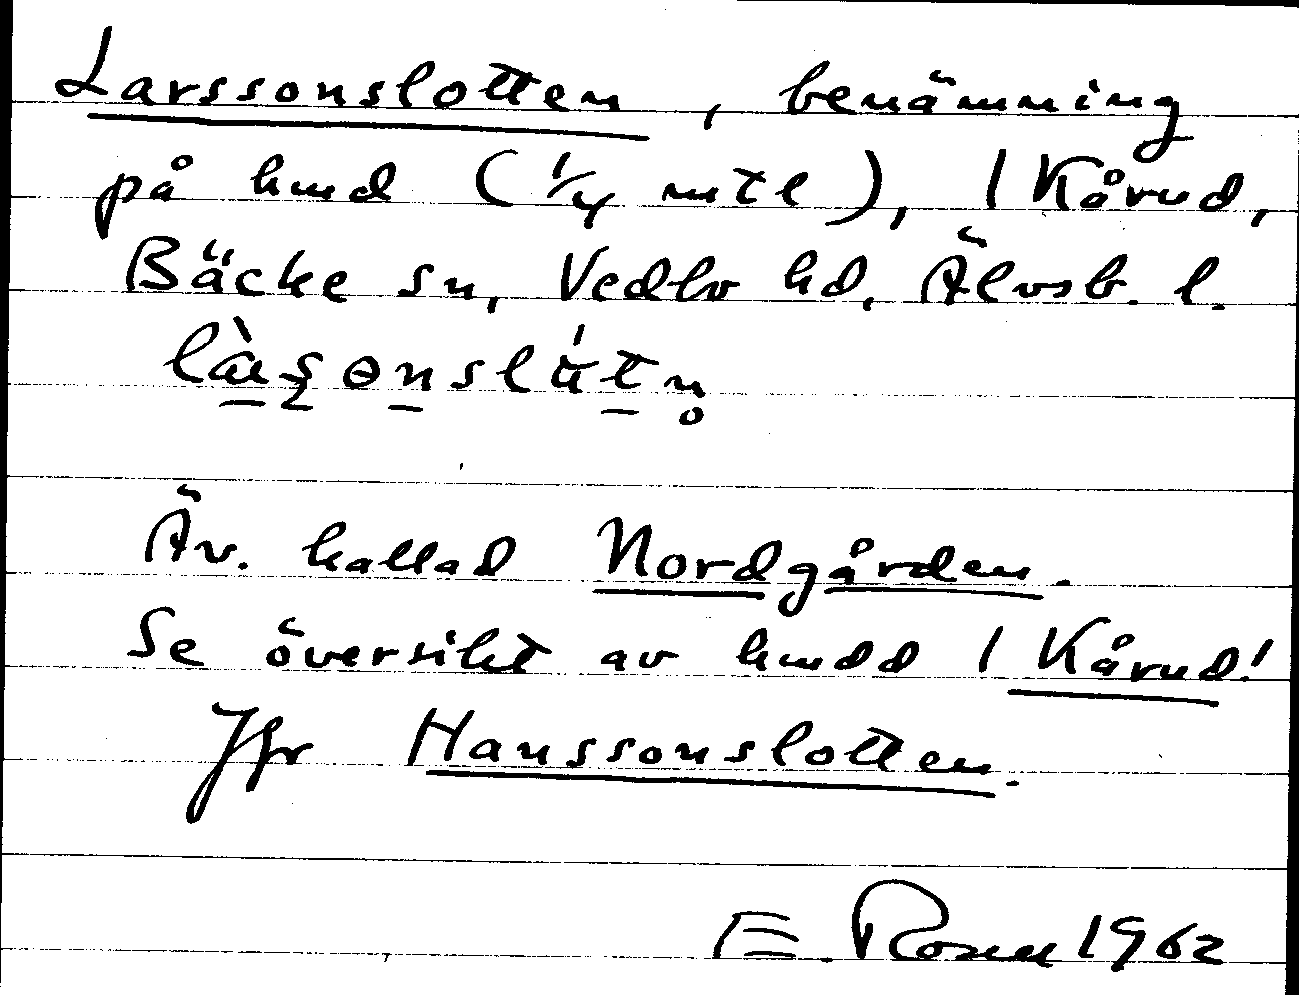 Larssonslotten, benämning
på hmd (1/4 mtl), 1 Kårud,
Bäcke sn, Vedbo hd, Älvsb. l.
Äv. kallad Nordgården.
Se översikt av hmdd 1 Kårud!
Jfr Hanssonslotten.
E. Rosell 1962